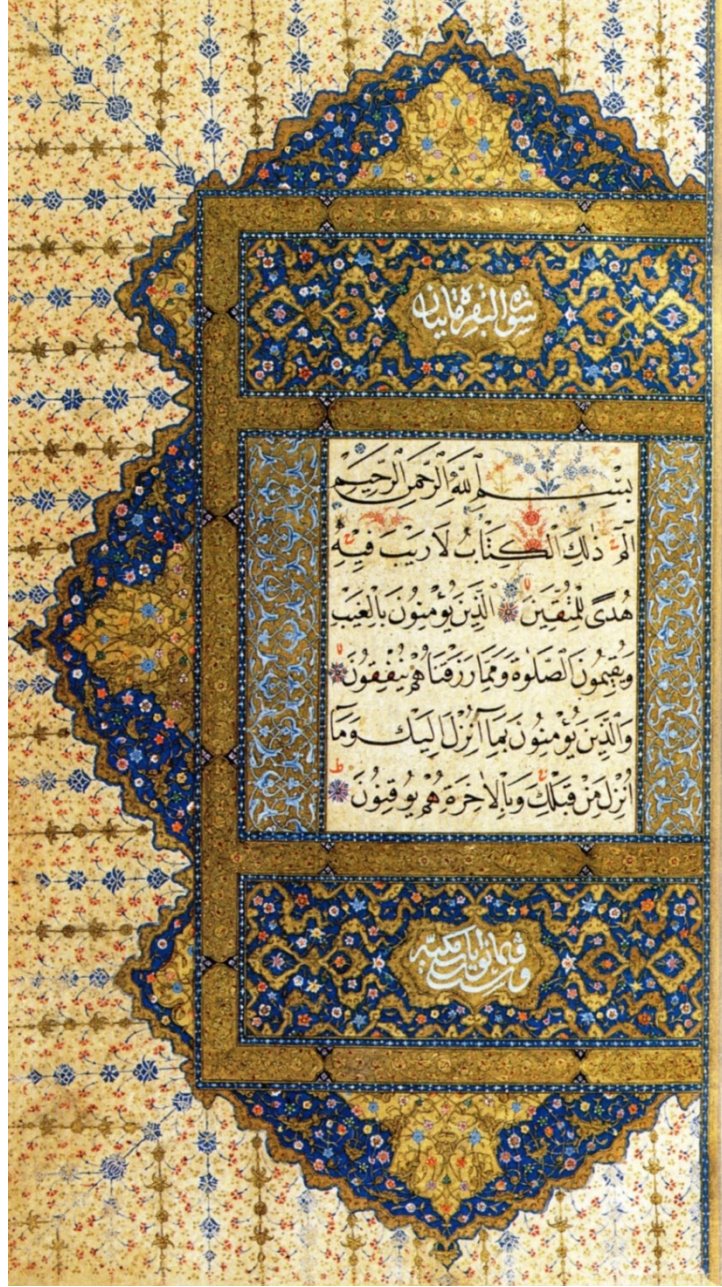 سورة البقرة مایتان
بِسْمِ ٱللَّهِ ٱلرَّحْمٰنِ ٱلرَّحِيمِ
الٓمٓ ذٰلِكَ الْكِتَابُ لَا رَيْبَ فِيهِ
هُدًى لِلْمُتَّقِينَ الَّذِينَ يُؤْمِنُونَ بِالْغَيْبِ
وَيُقِيمُونَ الصَّلٰوةَ وَمِمَّا رَزَقْنَاهُمْ يُنْفِقُونَ
وَالَّذِينَ يُؤْمِنُونَ بِمَا أُنْزِلَ إِلَيْكَ وَمَا
أُنْزِلَ مِنْ قَبْلِكَ وَبِالْاٰخِرَةِ هُمْ يُوقِنُونَ
وست